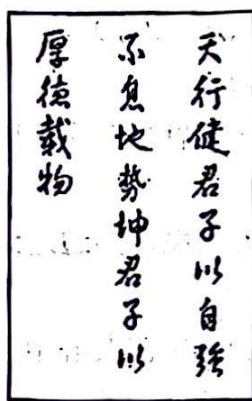 天行健君子以自強
不息地势坤君子以
厚德載物